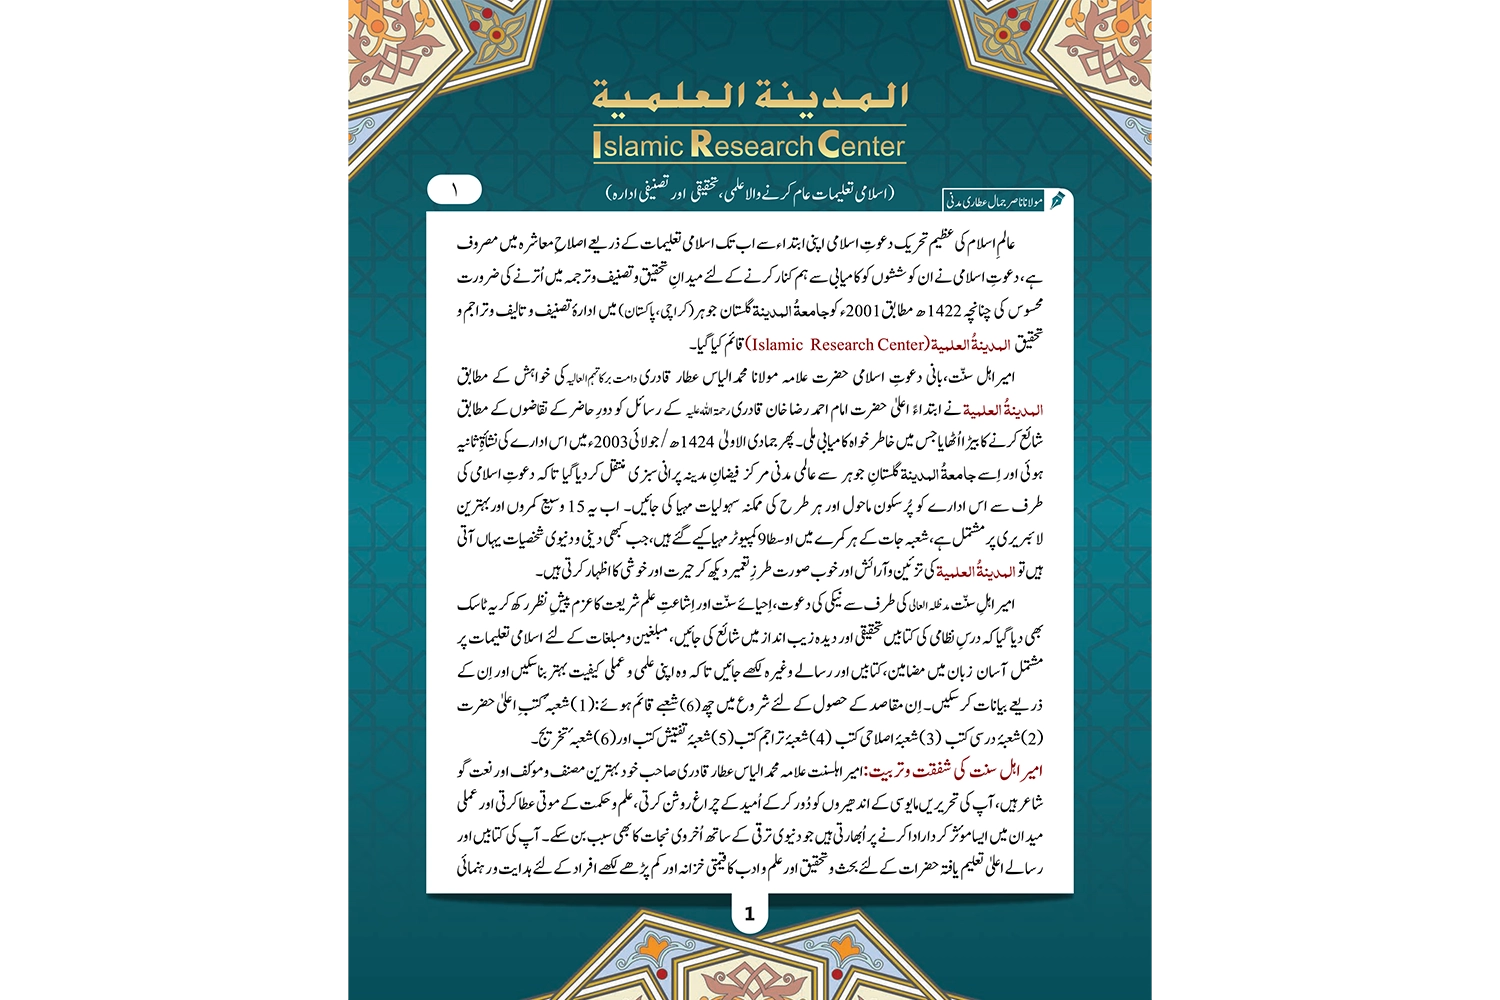 المدينة العلمية
Islamic Research Center
(اسلامی تعلیمات عام کرنے والا علمی، تحقیقی اور تصنیفی ادارہ)
۱
مولانا ناصر جمال عطاری مدنی
عالمِ اسلام کی عظیم تحریک دعوتِ اسلامی اپنی ابتداء سے اب تک اسلامی تعلیمات کے ذریعے اصلاحِ معاشرہ میں مصروف
ہے، دعوتِ اسلامی نے ان کوششوں کو کامیابی سے ہم کنار کرنے کے لئے میدانِ تحقیق و تصنیف و ترجمہ میں اُترنے کی ضرورت
محسوس کی چنانچہ 1422ھ مطابق 2001ء کو جامعۃُ المدینۃ گلستان جوہر (کراچی، پاکستان) میں ادارۂ تصنیف و تالیف و تراجم و
تحقیق المدینۃُ العلمیۃ (Islamic Research Center) قائم کیا گیا۔
امیرِ اہلِ سنّت، بانی دعوتِ اسلامی حضرت علامہ مولانا محمد الیاس عطار قادری دامت برکاتہم العالیہ کی خواہش کے مطابق
المدینۃُ العلمیۃ نے ابتداءً اعلیٰ حضرت امام احمد رضا خان قادری رحمۃ اللہ علیہ کے رسائل کو دورِ حاضر کے تقاضوں کے مطابق
شائع کرنے کا بیڑا اٹھایا جس میں خاطر خواہ کامیابی ملی۔ پھر جمادی الاولیٰ 1424ھ / جولائی 2003ء میں اس ادارے کی نشأۃِ ثانیہ
ہوئی اور اِسے جامعۃُ المدینۃ گلستانِ جوہر سے عالمی مدنی مرکز فیضانِ مدینہ پرانی سبزی منتقل کر دیا گیا تاکہ دعوتِ اسلامی کی
طرف سے اس ادارے کو پُر سکون ماحول اور ہر طرح کی ممکنہ سہولیات مہیا کی جائیں۔ اب یہ 15 وسیع کمروں اور بہترین
لائبریری پر مشتمل ہے، شعبہ جات کے ہر کمرے میں اوسطا 9 کمپیوٹر مہیا کیے گئے ہیں، جب کبھی دینی و دنیوی شخصیات یہاں آتی
ہیں تو المدینۃُ العلمیۃ کی تزئین و آرائش اور خوب صورت طرزِ تعمیر دیکھ کر حیرت اور خوشی کا اظہار کرتی ہیں۔
امیرِ اہلِ سنّت مدظلہ العالی کی طرف سے نیکی کی دعوت، اِحیائے سنّت اور اِشاعتِ علمِ شریعت کا عزم پیشِ نظر رکھ کر یہ ٹاسک
بھی دیا گیا کہ درسِ نظامی کی کتابیں تحقیقی اور دیدہ زیب انداز میں شائع کی جائیں، مبلغین و مبلغات کے لئے اسلامی تعلیمات پر
مشتمل آسان زبان میں مضامین، کتابیں اور رسالے وغیرہ لکھے جائیں تاکہ وہ اپنی علمی و عملی کیفیت بہتر بناسکیں اور اِن کے
ذریعے بیانات کر سکیں۔ اِن مقاصد کے حصول کے لئے شروع میں چھ (6) شعبے قائم ہوئے: (1) شعبہ کُتبِ اعلیٰ حضرت
(2) شعبۂ درسی کتب (3) شعبۂ اصلاحی کتب (4) شعبۂ تراجم کتب (5) شعبۂ تفتیش کتب اور (6) شعبۂ تخریج۔
امیرِ اہلِ سنت کی شفقت و تربیت: امیرِ اہلسنت علامہ محمد الیاس عطار قادری صاحب خود بہترین مصنف و مؤلف اور نعت گو
شاعر ہیں، آپ کی تحریریں مایوسی کے اندھیروں کو دُور کر کے اُمید کے چراغ روشن کرتی، علم و حکمت کے موتی عطا کرتی اور عملی
میدان میں ایسا مؤثر کردار ادا کرنے پر اُبھارتی ہیں جو دنیوی ترقی کے ساتھ اُخروی نجات کا بھی سبب بن سکے۔ آپ کی کتابیں اور
رسالے اعلیٰ تعلیم یافتہ حضرات کے لئے بحث و تحقیق اور علم و ادب کا قیمتی خزانہ اور کم پڑھے لکھے افراد کے لئے ہدایت و رہنمائی
1